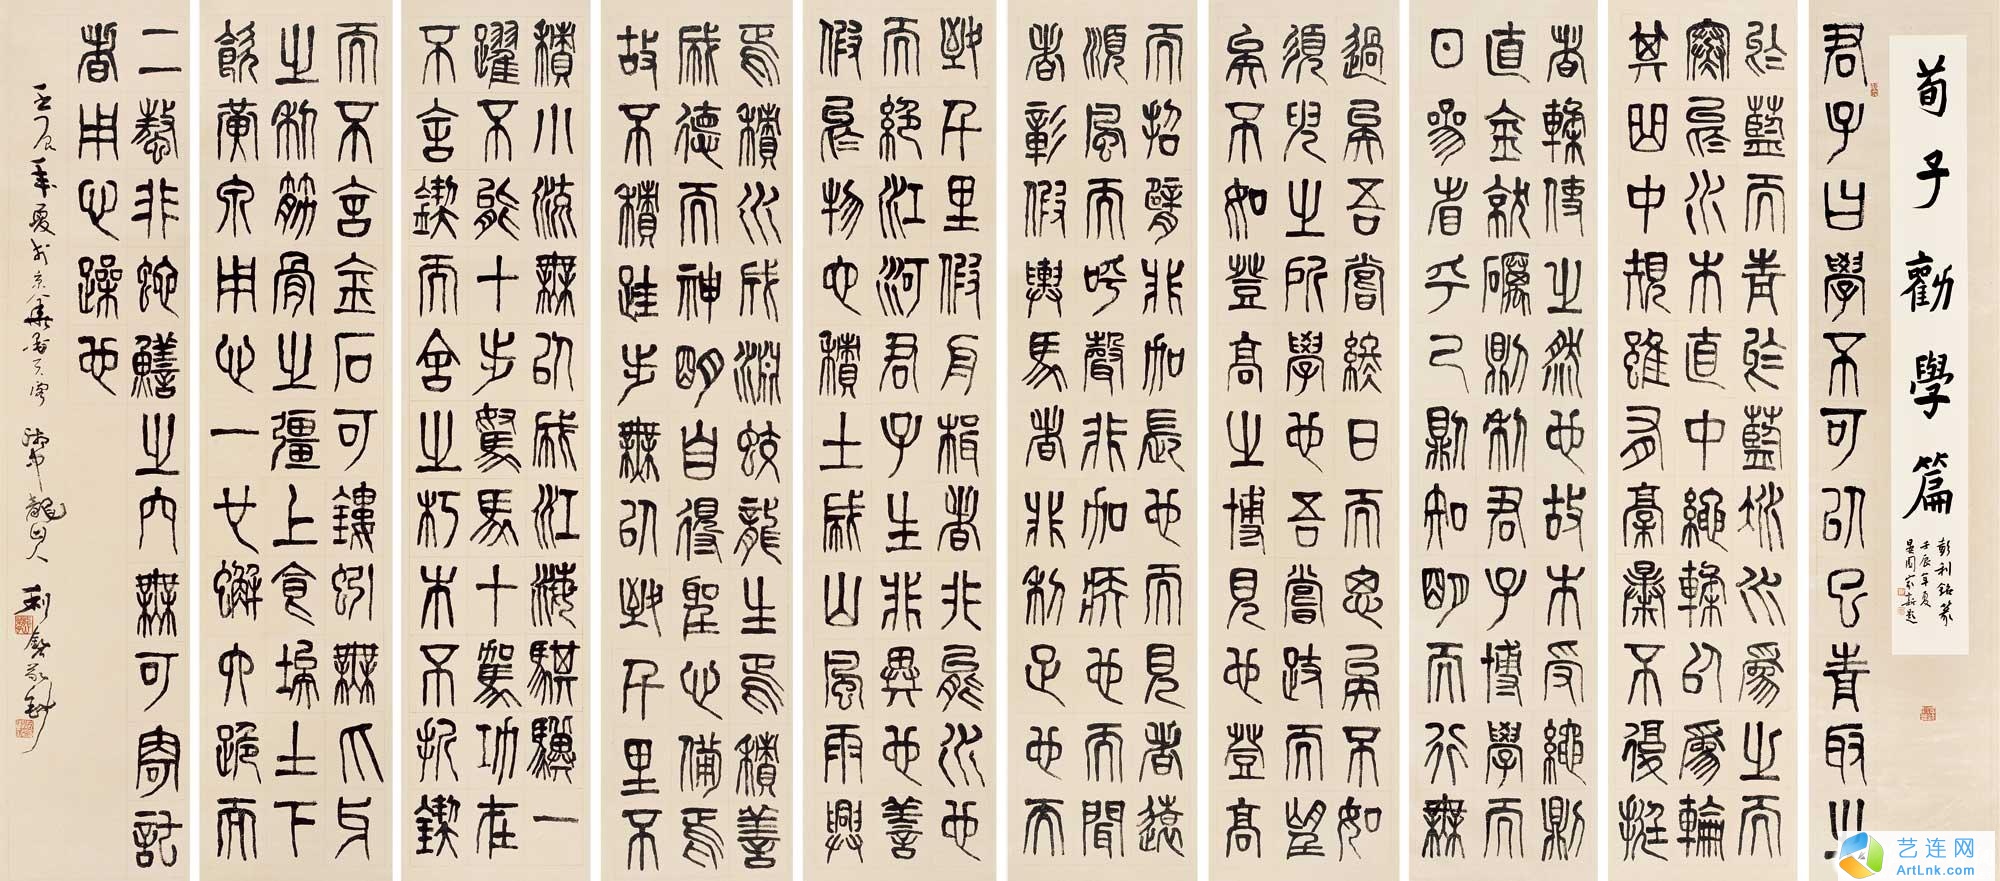 荀子勸學篇
彭利銘篆
壬辰年夏
君子曰學不可以已青取之
於藍而青於藍冰水爲之而
寒於水木直中繩輮以爲輪
其曲中規雖有槁暴不復挺
者輮使之然也故木受繩則
直金就礪則利君子博學而
日參省乎己則知明而行無
過矣吾嘗終日而思矣不如
須臾之所學也吾嘗跂而望
矣不如登高之博見也登高
而招臂非加長也而見者遠
順風而呼聲非加疾也而聞
者彰假輿馬者非利足也而
致千里假舟楫者非能水也
而絕江河君子生非異也善
假於物也積土成山風雨興
焉積水成淵蛟龍生焉積善
成德而神明自得聖心備焉
故不積跬步無以致千里不
積小流無以成江海騏驥一
躍不能十步駑馬十駕功在
不舍鍥而舍之朽木不折鍥
而不舍金石可鏤蚓無爪牙
之利筋骨之彊上食埃土下
飲黃泉用心一也蟹六跪而
二螯非蛇鱔之穴無可寄託
者用心躁也
壬辰年夏於京華 利銘篆
艺连网
ArtLnk.com